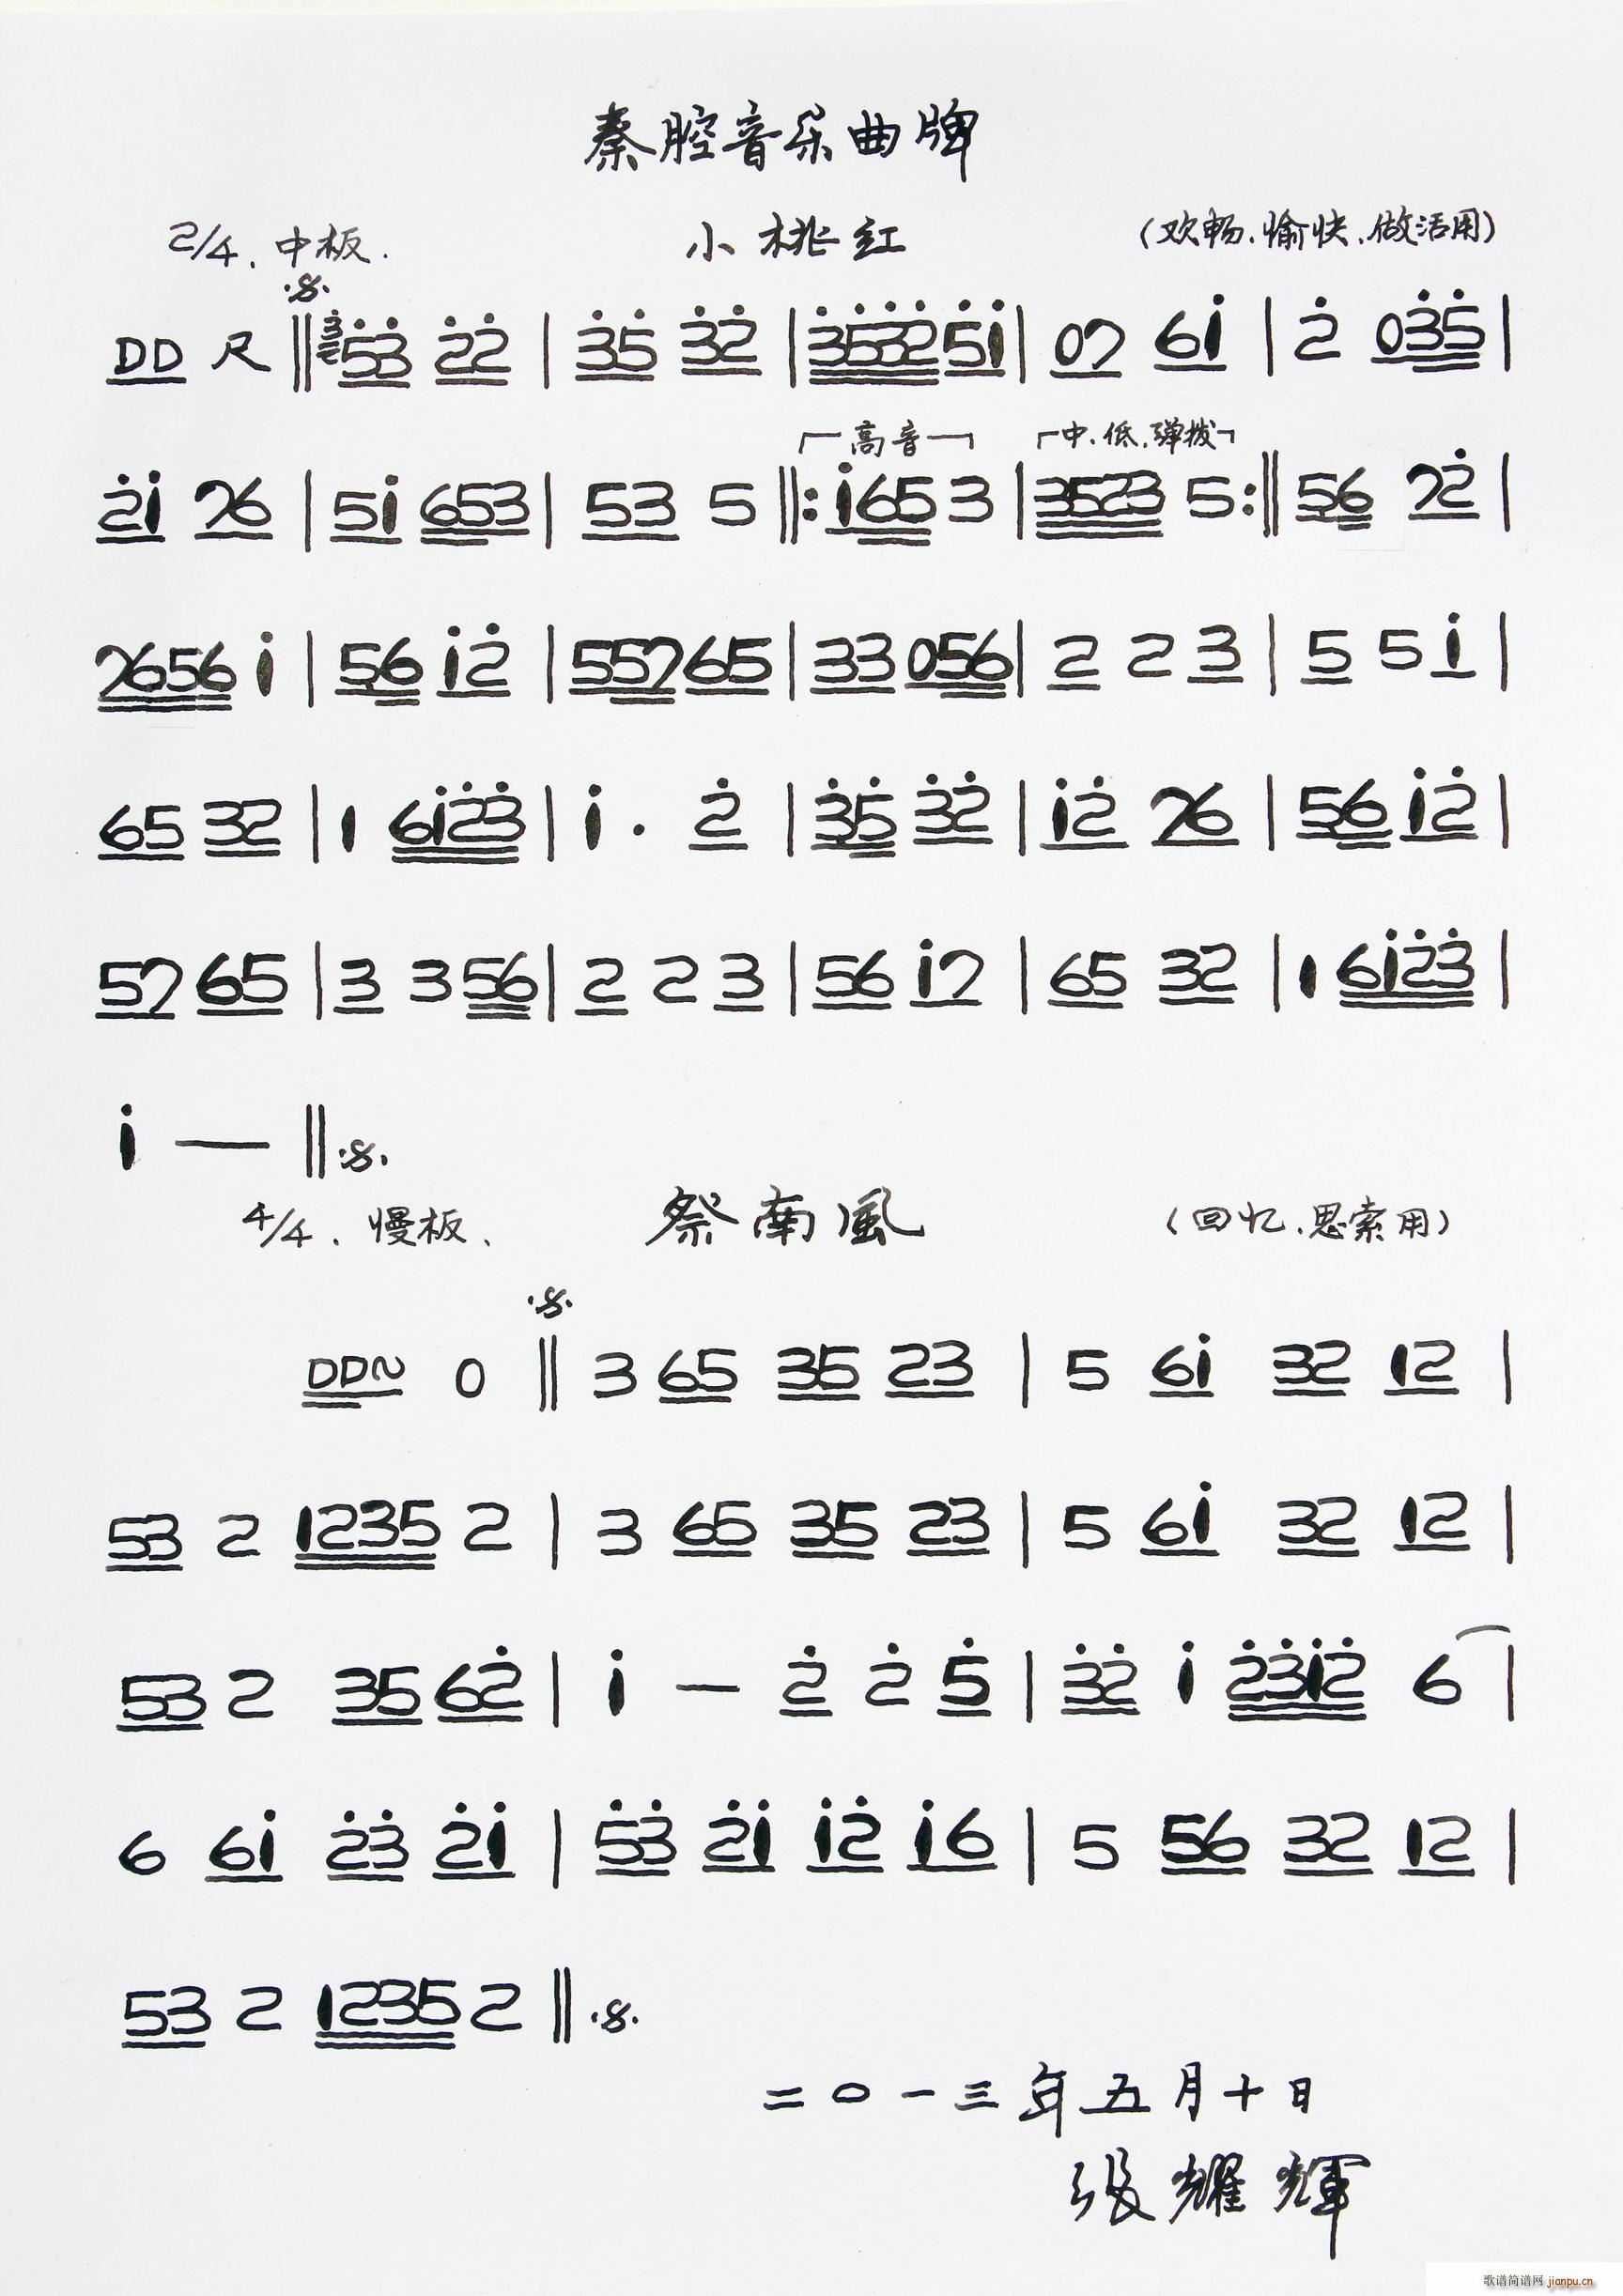 秦腔音乐曲牌
2/4. 中板. 小桃红 (欢畅.愉快.做活用)
DD 尺 ‖ 5̇3̇ 2̇2̇ | 3̇5̇ 3̇2̇ | 3̇5̇3̇2̇ 5̇i | 07 6i | 2̇ 03̇5̇ |
高音 中.低.弹拨
2̇i 76 | 5i 653 | 53 5 ‖: i65 3 | 3523 5 :‖ 56 72̇ |
7656 i | 56 i2̇ | 557 65 | 33 056 | 2 2 3 | 5 5 i |
65 32 | 1 6i2̇3̇ | i · 2̇ | 3̇5̇ 3̇2̇ | i2̇ 76 | 56 i2̇ |
57 65 | 3 3 56 | 2 2 3 | 56 i7 | 65 32 | 1 6i2̇3̇ |
i — ‖
4/4. 慢板. 祭南風 (回忆.思索用)
DD~ 0 ‖ 3 65 35 23 | 5 6i 32 12 |
53 2 1235 2 | 3 65 35 23 | 5 6i 32 12 |
53 2 35 62̇ | i — 2̇ 2̇ 5̇ | 3̇2̇ i 2̇3̇i2̇ 6 |
6 6i 2̇3̇ 2̇i | 5̇3̇ 2̇i i2̇ i6 | 5 56 32 12 |
53 2 1235 2 ‖
二〇一三年五月十日
張耀輝
歌谱简谱网 jianpu.cn